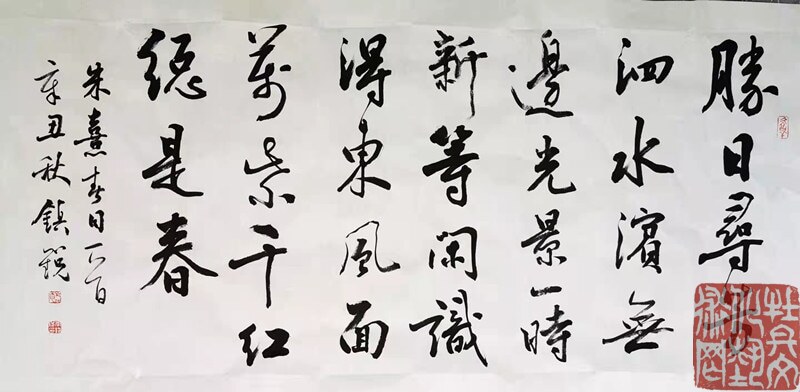 勝日尋芳
泗水濱無
邊光景一時
新等閑識
得東風面
萬紫千红
總是春
朱熹春日一首
辛丑秋鎮銳